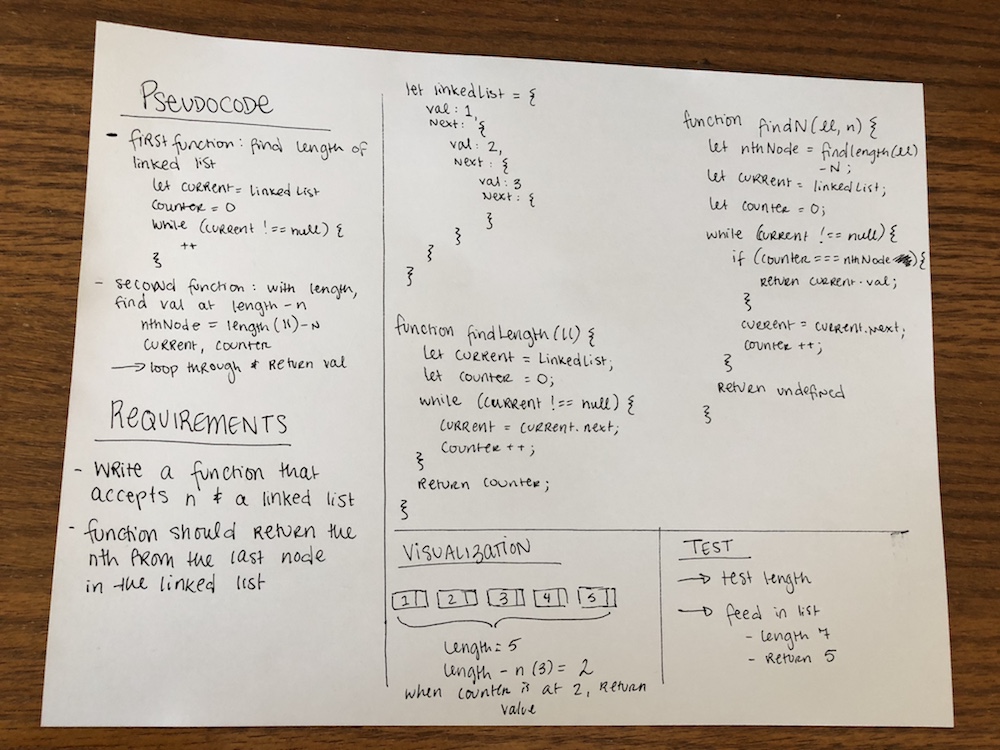 PSEUDOCODE
- first function: find length of
linked list
let current = linked list
counter = 0
while (current !== null) {
++
}
- second function: with length,
find val at length - n
nthNode = length (ll) - N
current, counter
→ loop through & return val
REQUIREMENTS
- Write a function that
accepts n & a linked list
- function should return the
nth from the last node
in the linked list
let linkedList = {
val: 1,
Next: {
val: 2,
Next: {
val: 3
Next: {
}
}
}
}
function findLength (ll) {
let current = LinkedList;
let counter = 0;
while (current !== null) {
current = current.next;
counter ++;
}
return counter;
}
function findN (ll, n) {
let nthNode = findlength(ll)
- N;
let current = linkedList;
let counter = 0;
while (current !== null) {
if (counter === nthNode) {
return current.val;
}
current = current.next;
counter ++;
}
return undefined
}
VISUALIZATION
1 2 3 4 5
Length = 5
Length - n (3) = 2
when counter is at 2, return
value
TEST
→ test length
→ feed in list
- Length 7
- return 5